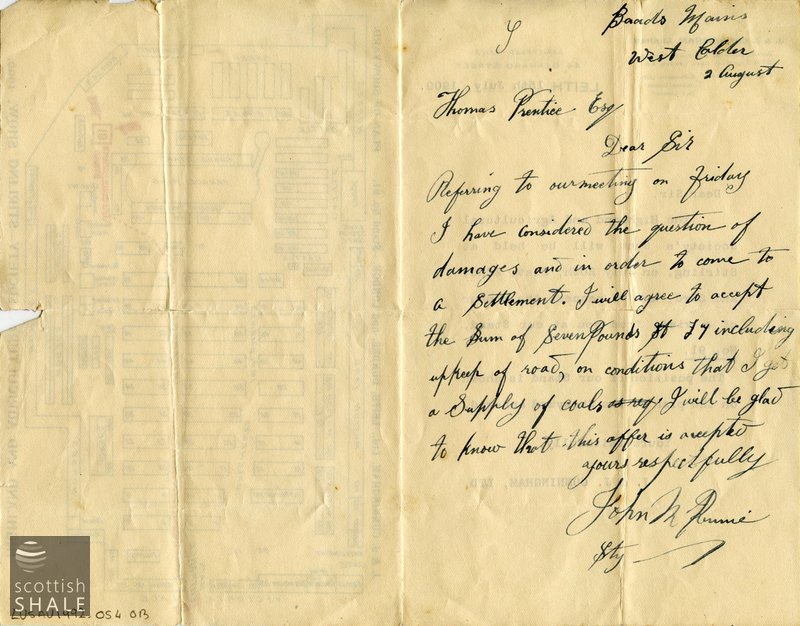 Baads Mains
West Calder
2 August
Thomas Prentice Esq
Dear Sir
Referring to our meeting on Friday
I have considered the question of
damages and in order to come to
a Settlement. I will agree to accept
the Sum of Seven Pounds St £7 including
upkeep of road, on conditions that I get
a Supply of coals as req I will be glad
to know that this offer is accepted
yours respectfully
John
scottish
SHALE
LVSAV1992.054 0B